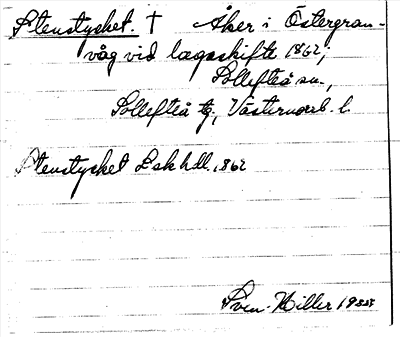 Stenstycket. † Åker i Östergran-
våg vid lagaskifte 1862;
Sollefteå sn.,
Sollefteå tg, Västernorrl. l.
Stenstycket Lskhdl. 1862
Sven Hiller